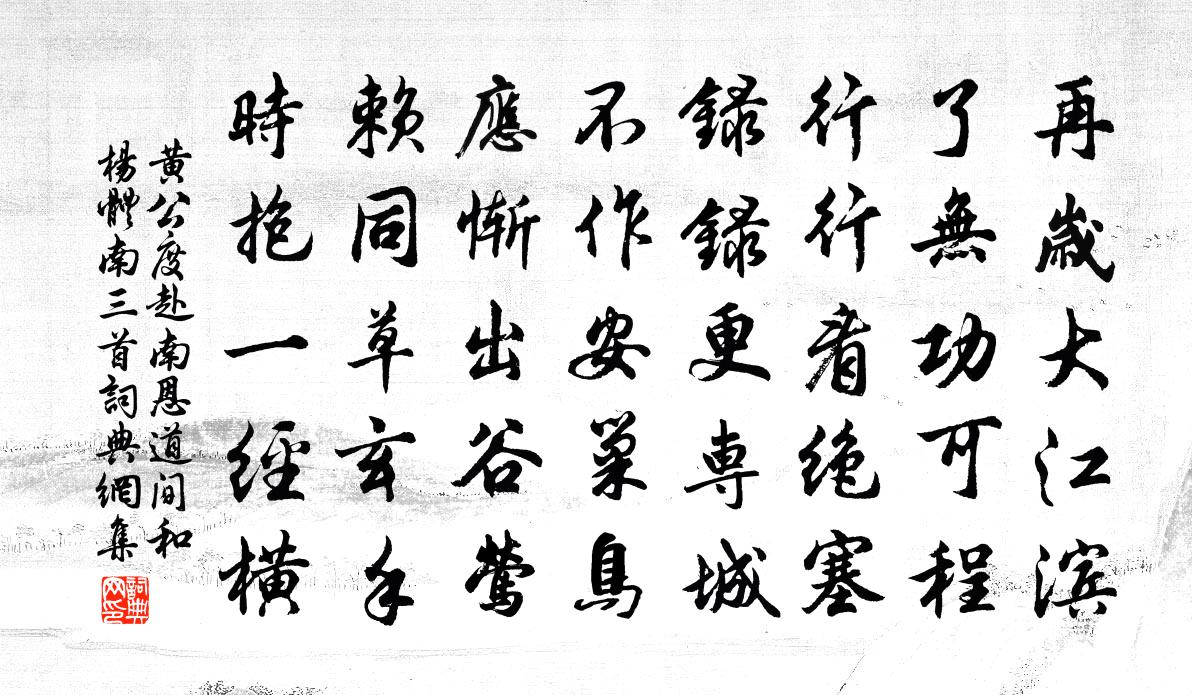 再歳大江滨
了無功可程
行行看绝塞
録録更専城
不作安巢鳥
應慚出谷鶯
賴同草玄手
時抱一經橫
黄公度赴南恩道间和
楊體南三首詞典網集
詞典
网印